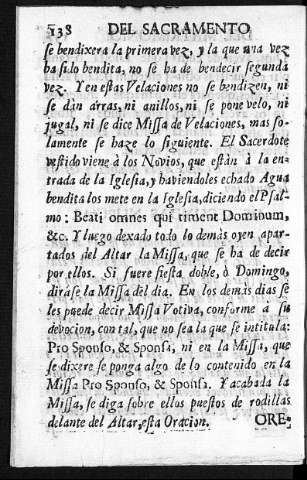 138 DEL SACRAMENTO
se bendixera la primera vez, y la que una vez
ha sido bendita, no se ha de bendecir segunda
vez. Y en estas Velaciones no se bendizen, ni
se dàn arras, ni anillos, ni se pone velo, ni
jugal, ni se dice Missa de Velaciones, mas so-
lamente se haze lo siguiente. El Sacerdote
vestido viene à los Novios, que están à la en-
trada de la Iglesia, y haviendoles echado Agua
bendita los mete en la Iglesia, diciendo el Psal-
mo: Beati omnes qui timent Dominum,
&c. Y luego dexado todo lo demàs oyen apar-
tados del Altar la Missa, que se ha de decir
por ellos. Si fuere fiesta doble, ò Domingo,
dirase la Missa del dia. En los demàs dias se
les puede decir Missa Votiva, conforme a su
devocion, con tal, que no sea la que se intitula:
Pro Sponso, & Sponsa, ni en la Missa, que
se dixere se ponga algo de lo contenido en la
Missa Pro Sponso, & Sponsa. Y acabada la
Missa, se diga sobre ellos puestos de rodillas
delante del Altar, esta Oracion. ORE-